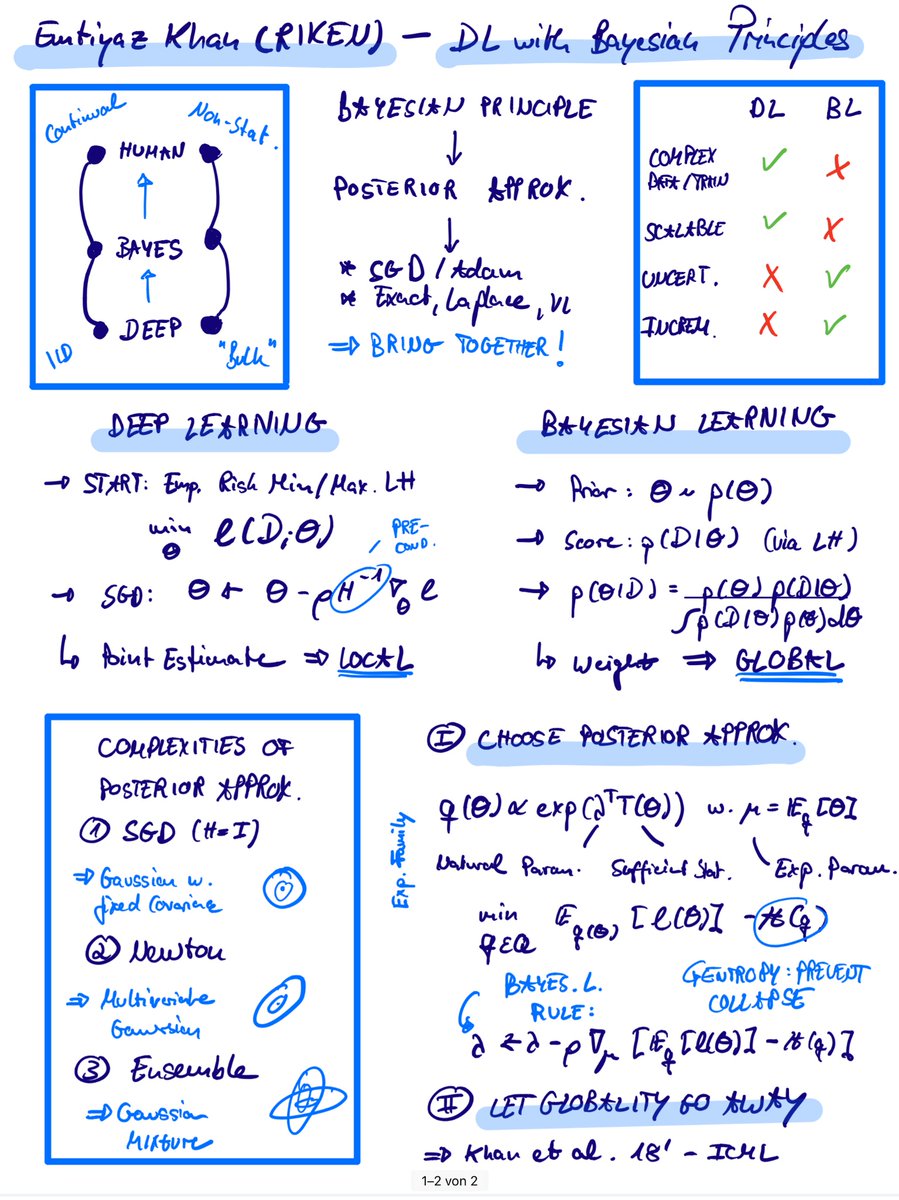 Emtiyaz Khan (RIKEN) — DL with Bayesian Principles
Continual
Non-Stat.
HUMAN
BAYES
DEEP
IID
"Bulk"
BAYESIAN PRINCIPLE
↓
POSTERIOR APPROX.
↓
* SGD / Adam
* Exact, Laplace, VI
⇒ BRING TOGETHER!
DL BL
COMPLEX DATA/TRAIN ✓ ✗
SCALABLE ✓ ✗
UNCERT. ✗ ✓
INCREM. ✗ ✓
DEEP LEARNING
→ START: Emp. Risk Min/Max. LH
min_θ ℓ(D;θ)
PRE-
COND.
→ SGD: θ ← θ - ρ H⁻¹ ∇_θ ℓ
↳ Point Estimate ⇒ LOCAL
BAYESIAN LEARNING
→ Prior: θ ~ p(θ)
→ Score: p(D|θ) (via LH)
→ p(θ|D) = p(θ) p(D|θ) / ∫p(D|θ)p(θ)dθ
↳ Weight ⇒ GLOBAL
COMPLEXITIES OF
POSTERIOR APPROX.
① SGD (H=I)
⇒ Gaussian w.
fixed Covariance
② Newton
⇒ Multivariate
Gaussian
③ Ensemble
⇒ Gaussian
MIXTURE
Ⓘ CHOOSE POSTERIOR APPROX.
Exp. Family
q(θ) ∝ exp(λᵀT(θ)) w. μ = 𝔼_q[θ]
Natural Param. Sufficient Stat. Exp. Param.
min_{q∈Q} 𝔼_{q(θ)} [ℓ(θ)] - ℋ(q)
BAYES. L.
RULE:
ENTROPY: PREVENT
COLLAPSE
λ ← λ - ρ ∇_μ [𝔼_q[ℓ(θ)] - ℋ(q)]
Ⓘ︎Ⓘ LET GLOBALITY GO AWAY
⇒ Khan et al. 18' - ICML
1–2 von 2